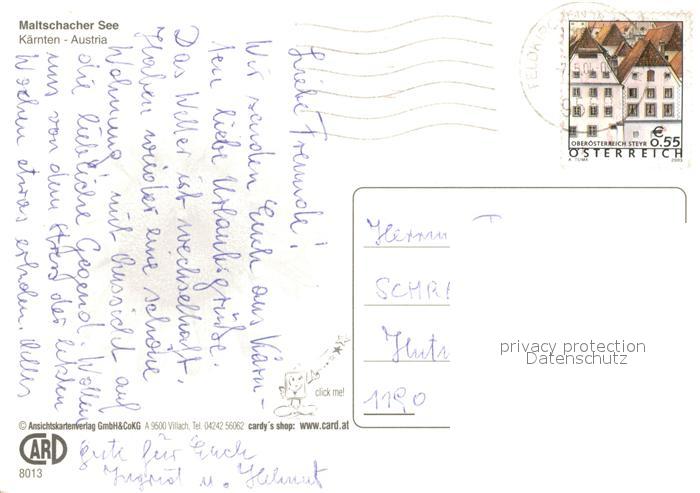 Maltschacher See
Kärnten - Austria
Liebe Freunde!
Wir senden Euch aus Kärn-
ten liebe Urlaubsgrüße.
Das Wetter ist wechselhaft.
Haben wieder eine schöne
Wohnung mit Aussicht auf
die liebliche Gegend. Wollen
uns von dem Streß der letzten
Wochen etwas erholen. Alles
gute für Euch
Ingrid u. Helmut
FELDKIRCHEN
OBERÖSTERREICH STEYR
€ 0.55
A. TUMA 2003
ÖSTERREICH
Herrn
SCHRA
Hutt
1190
privacy protection
Datenschutz
click me!
© Ansichtskartenverlag GmbH&CoKG A 9500 Villach, Tel. 04242 56062 cardy´s shop: www.card.at
CARD
8013